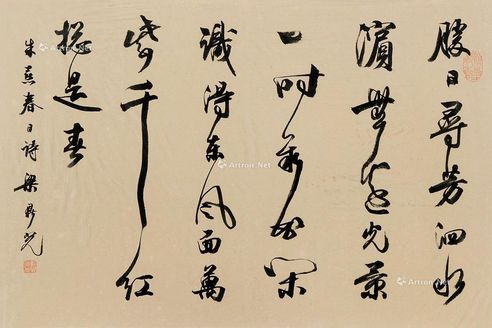 勝日尋芳泗水
濱無邊光景
一時新等閒
識得東風面萬
紫千紅
總是春
朱熹春日詩 梁鼎光
Artron.Net
Artron.Net
Artron.Net
Artron.Net